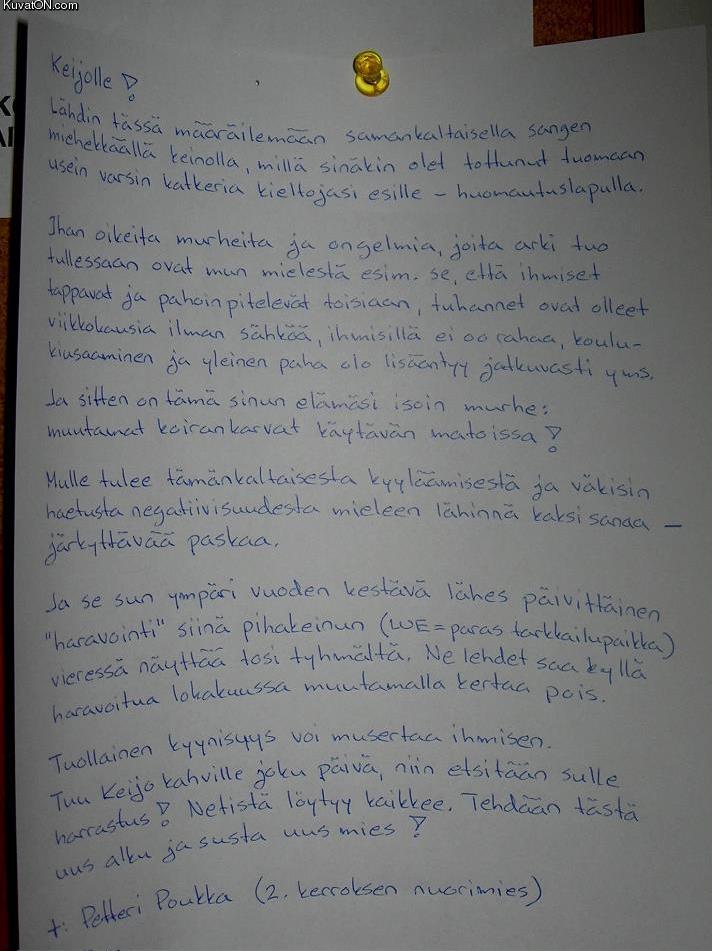 KuvatON.com
Keijolle!
Lähdin tässä määräilemään samankaltaisella sangen
miehekkäällä keinolla, millä sinäkin olet tottunut tuomaan
usein varsin katkeria kieltojasi esille – huomautuslapulla.
Ihan oikeita murheita ja ongelmia, joita arki tuo
tullessaan ovat mun mielestä esim. se, että ihmiset
tappavat ja pahoinpitelevät toisiaan, tuhannet ovat olleet
viikkokausia ilman sähköä, ihmisillä ei oo rahaa, koulu-
kiusaaminen ja yleinen paha olo lisääntyy jatkuvasti yms.
Ja sitten on tämä sinun elämäsi isoin murhe:
muutamat koirankarvat käytävän matoissa!
Mulle tulee tämänkaltaisesta kyyläämisestä ja väkisin
haetusta negatiivisuudesta mieleen lähinnä kaksi sanaa –
järkyttävää paskaa.
Ja se sun ympäri vuoden kestävä lähes päivittäinen
"haravointi" siinä pihakeinun (WE=paras tarkkailupaikka)
vieressä näyttää tosi tyhmältä. Ne lehdet saa kyllä
haravoitua lokakuussa muutamalla kertaa pois.
Tuollainen kyynisyys voi musertaa ihmisen.
Tuu Keijo kahville joku päivä, niin etsitään sulle
harrastus! Netistä löytyy kaikkee. Tehdään tästä
uus alku ja susta uus mies!
t: Petteri Poukka (2. kerroksen nuorimies)